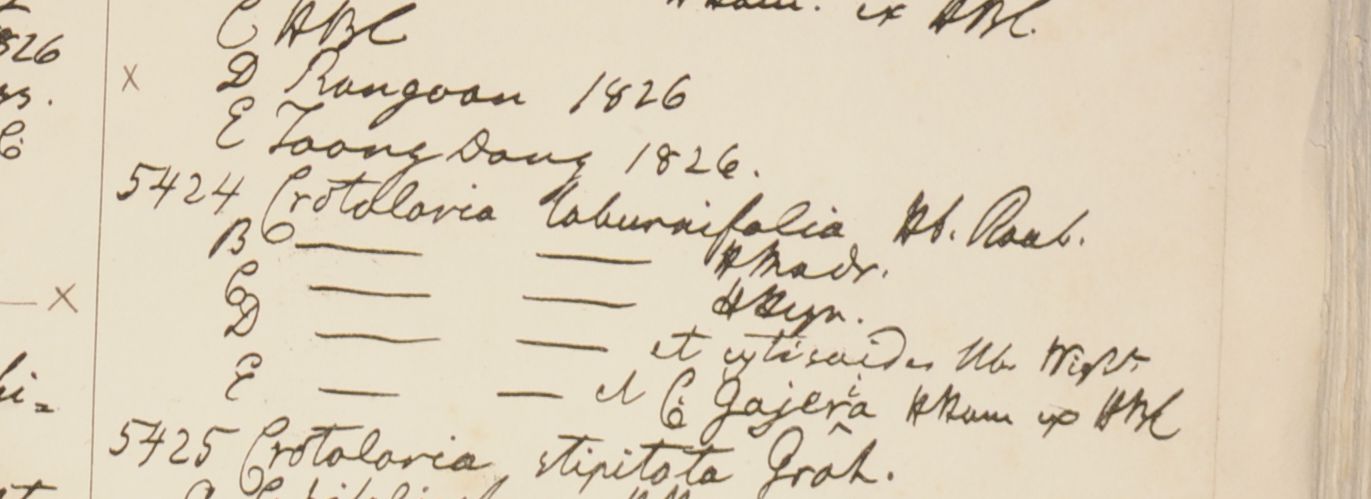 HHam. ex HBC.
C HBC
826
D Rangoon 1826
E Taong Dong 1826.
5424 Crotolaria laburnifolia Hb. Roxb.
B — — HMadr.
C — — HHeyn.
D — — et cytisoides Hb. Wight
E — — et C Gajera HHam ex HBC
5425 Crotolaria stipitata Grah.